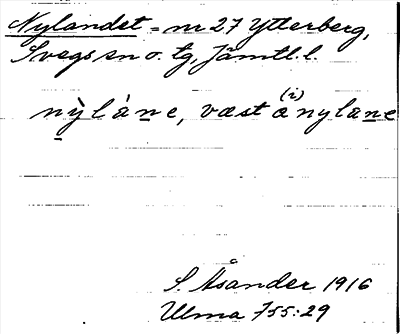 Nylandet = nr 27 Ytterberg,
Svegs sn o. tg, Jämtl. l.
(i)
nỳlàne, væst ånylane
S. Åsander 1916
Ulma 755:29